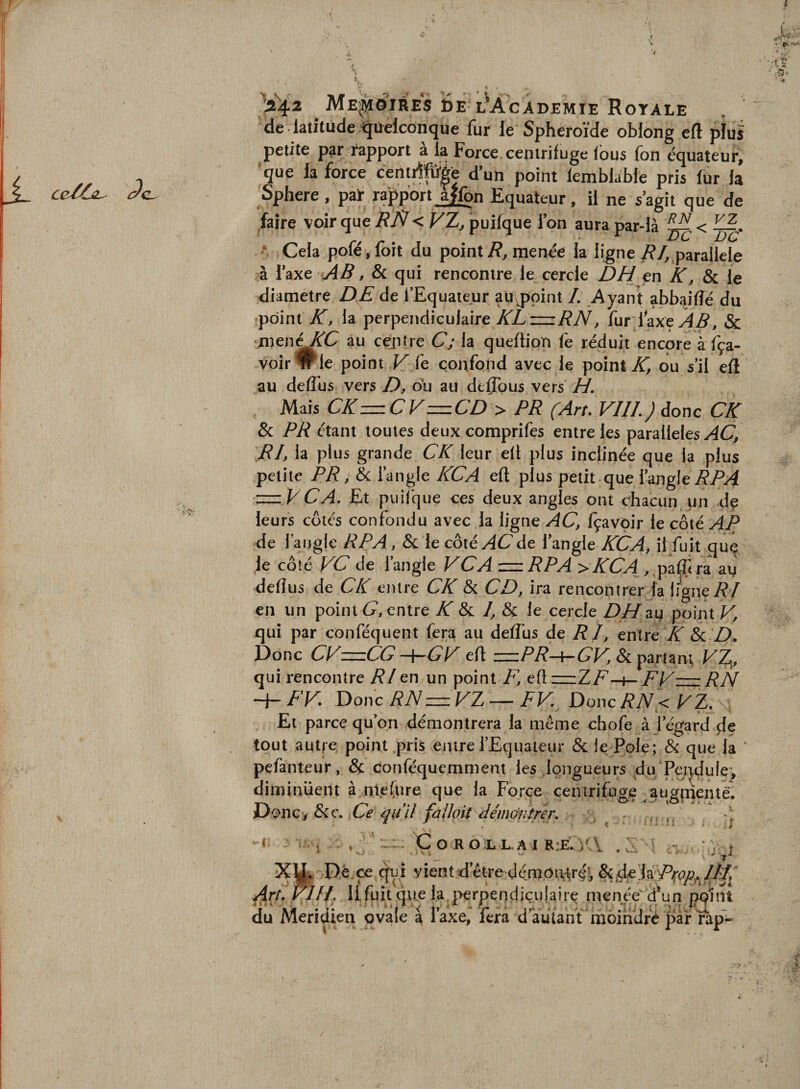 242 MEMOIRES DE L'ACADEMIE ROYALE
de latitude quelconque sur le Spheroïde oblong est plus
petite par rapport à la Force centrifuge sous son équateur,
que la force centrifuge d'un point semblable pris sur la
Sphere, par rapport à son Equateur, il ne s'agit que de
faire voir que RN < VZ, puisque l'on aura par-là RN/DC < VZ/DC.
Cela posé, soit du point R, menée la ligne RI, parallele
à l'axe AB, & qui rencontre le cercle DH en K, & le
diametre DE de l'Equateur au point I. Ayant abbaissé du
point K, la perpendiculaire KL = RN, sur l'axe AB, &
mené KC au centre C; la question se réduit encore à sça-
voir si le point V se confond avec le point K, ou s'il est
au dessus vers D, ou au dessous vers H.
Mais CK = CV = CD > PR (Art. VIII.) donc CK
& PR étant toutes deux comprises entre les paralleles AC,
RI, la plus grande CK leur est plus inclinée que la plus
petite PR, & l'angle KCA est plus petit que l'angle RPA
= VCA. Et puisque ces deux angles ont chacun un de
leurs côtés confondu avec la ligne AC, sçavoir le côté AP
de l'angle RPA, & le côté AC de l'angle KCA, il suit que
le côté VC de l'angle VCA = RPA > KCA, passera au
dessus de CK entre CK & CD, ira rencontrer la ligne RI
en un point G, entre K & I, & le cercle DH au point V,
qui par conséquent sera au dessus de RI, entre K & D.
Donc CV = CG + GV est = PR + GV, & partant VZ,
qui rencontre RI en un point F, est = ZF + FV = RN
+ FV. Donc RN = VZ — FV. Donc RN < VZ.
Et parce qu'on démontrera la même chose à l'égard de
tout autre point pris entre l'Equateur & le Pole; & que la
pesanteur, & conséquemment les longueurs du Pendule,
diminüent à mesure que la Force centrifuge augmente.
Donc, &c. Ce qu'il falloit démontrer.
COROLLAIRE.
XII. De ce qui vient d'être démontré, & de la Prop. III.
Art. VIII. il suit que la perpendiculaire menée d'un point
du Meridien ovale à l'axe, sera d'autant moindre par rap-